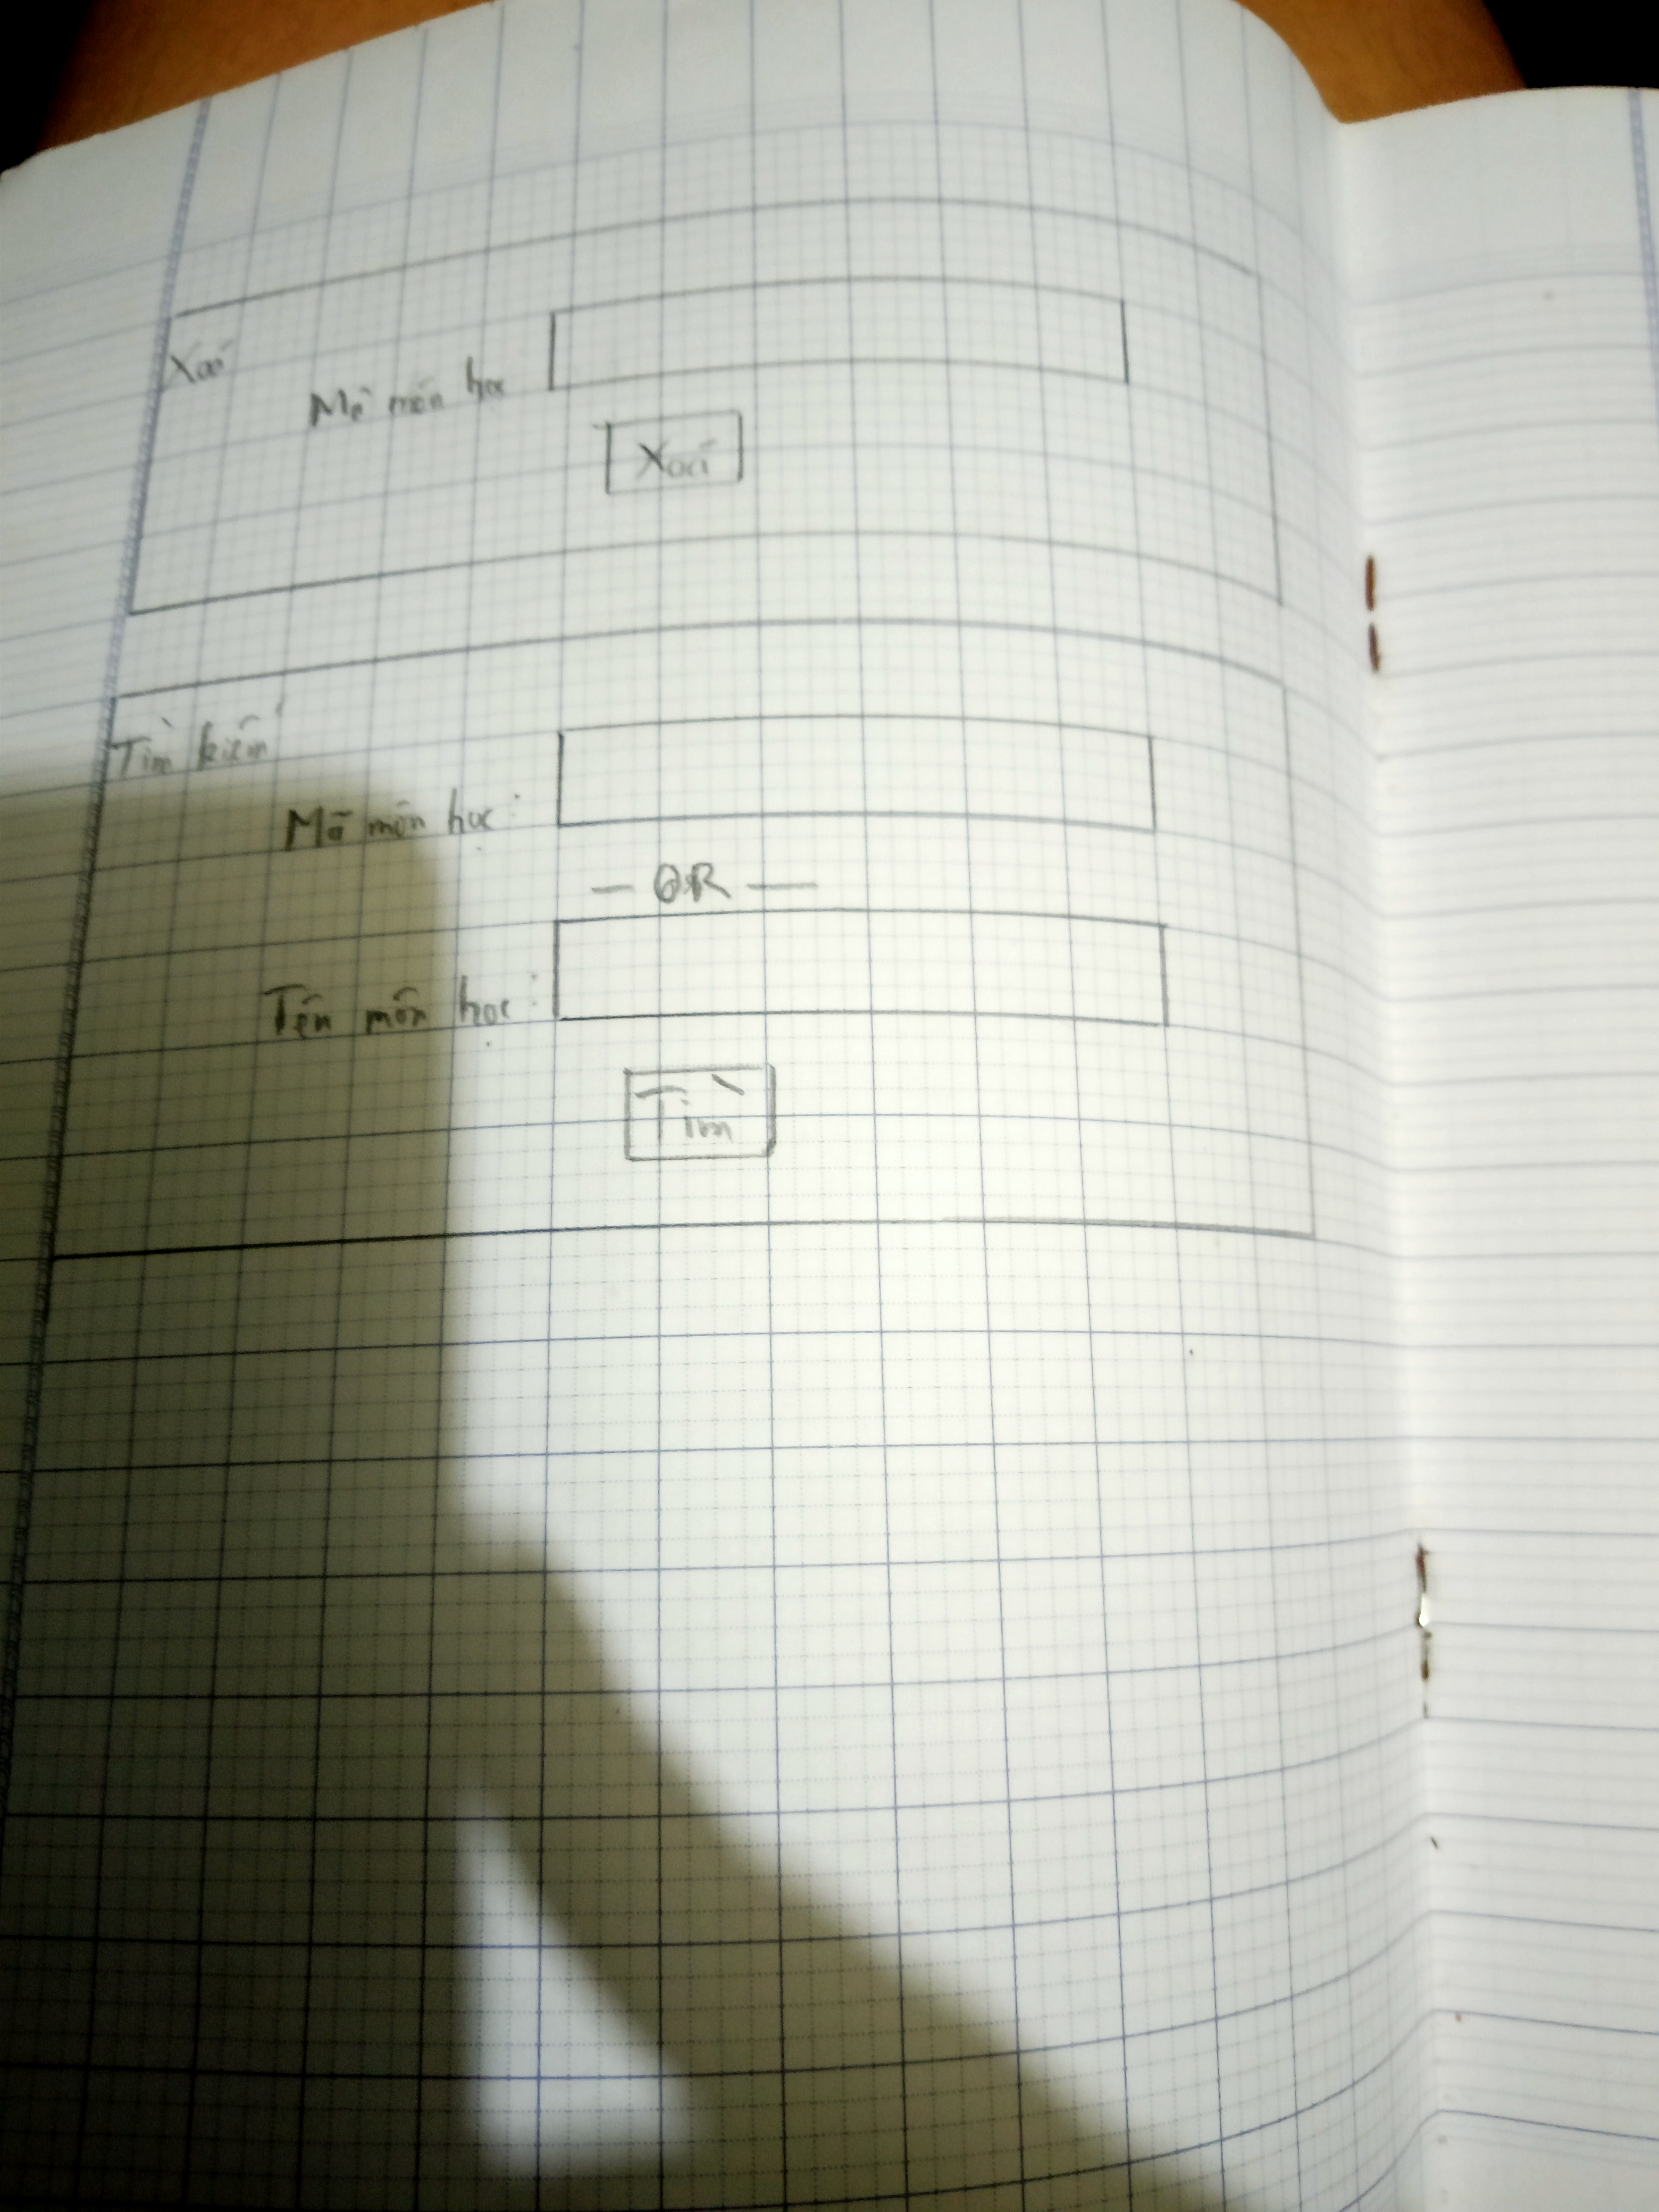 Xoá
Mã môn học
Xoá
Tìm kiếm
Mã môn học:
— OR —
Tên môn học:
Tìm